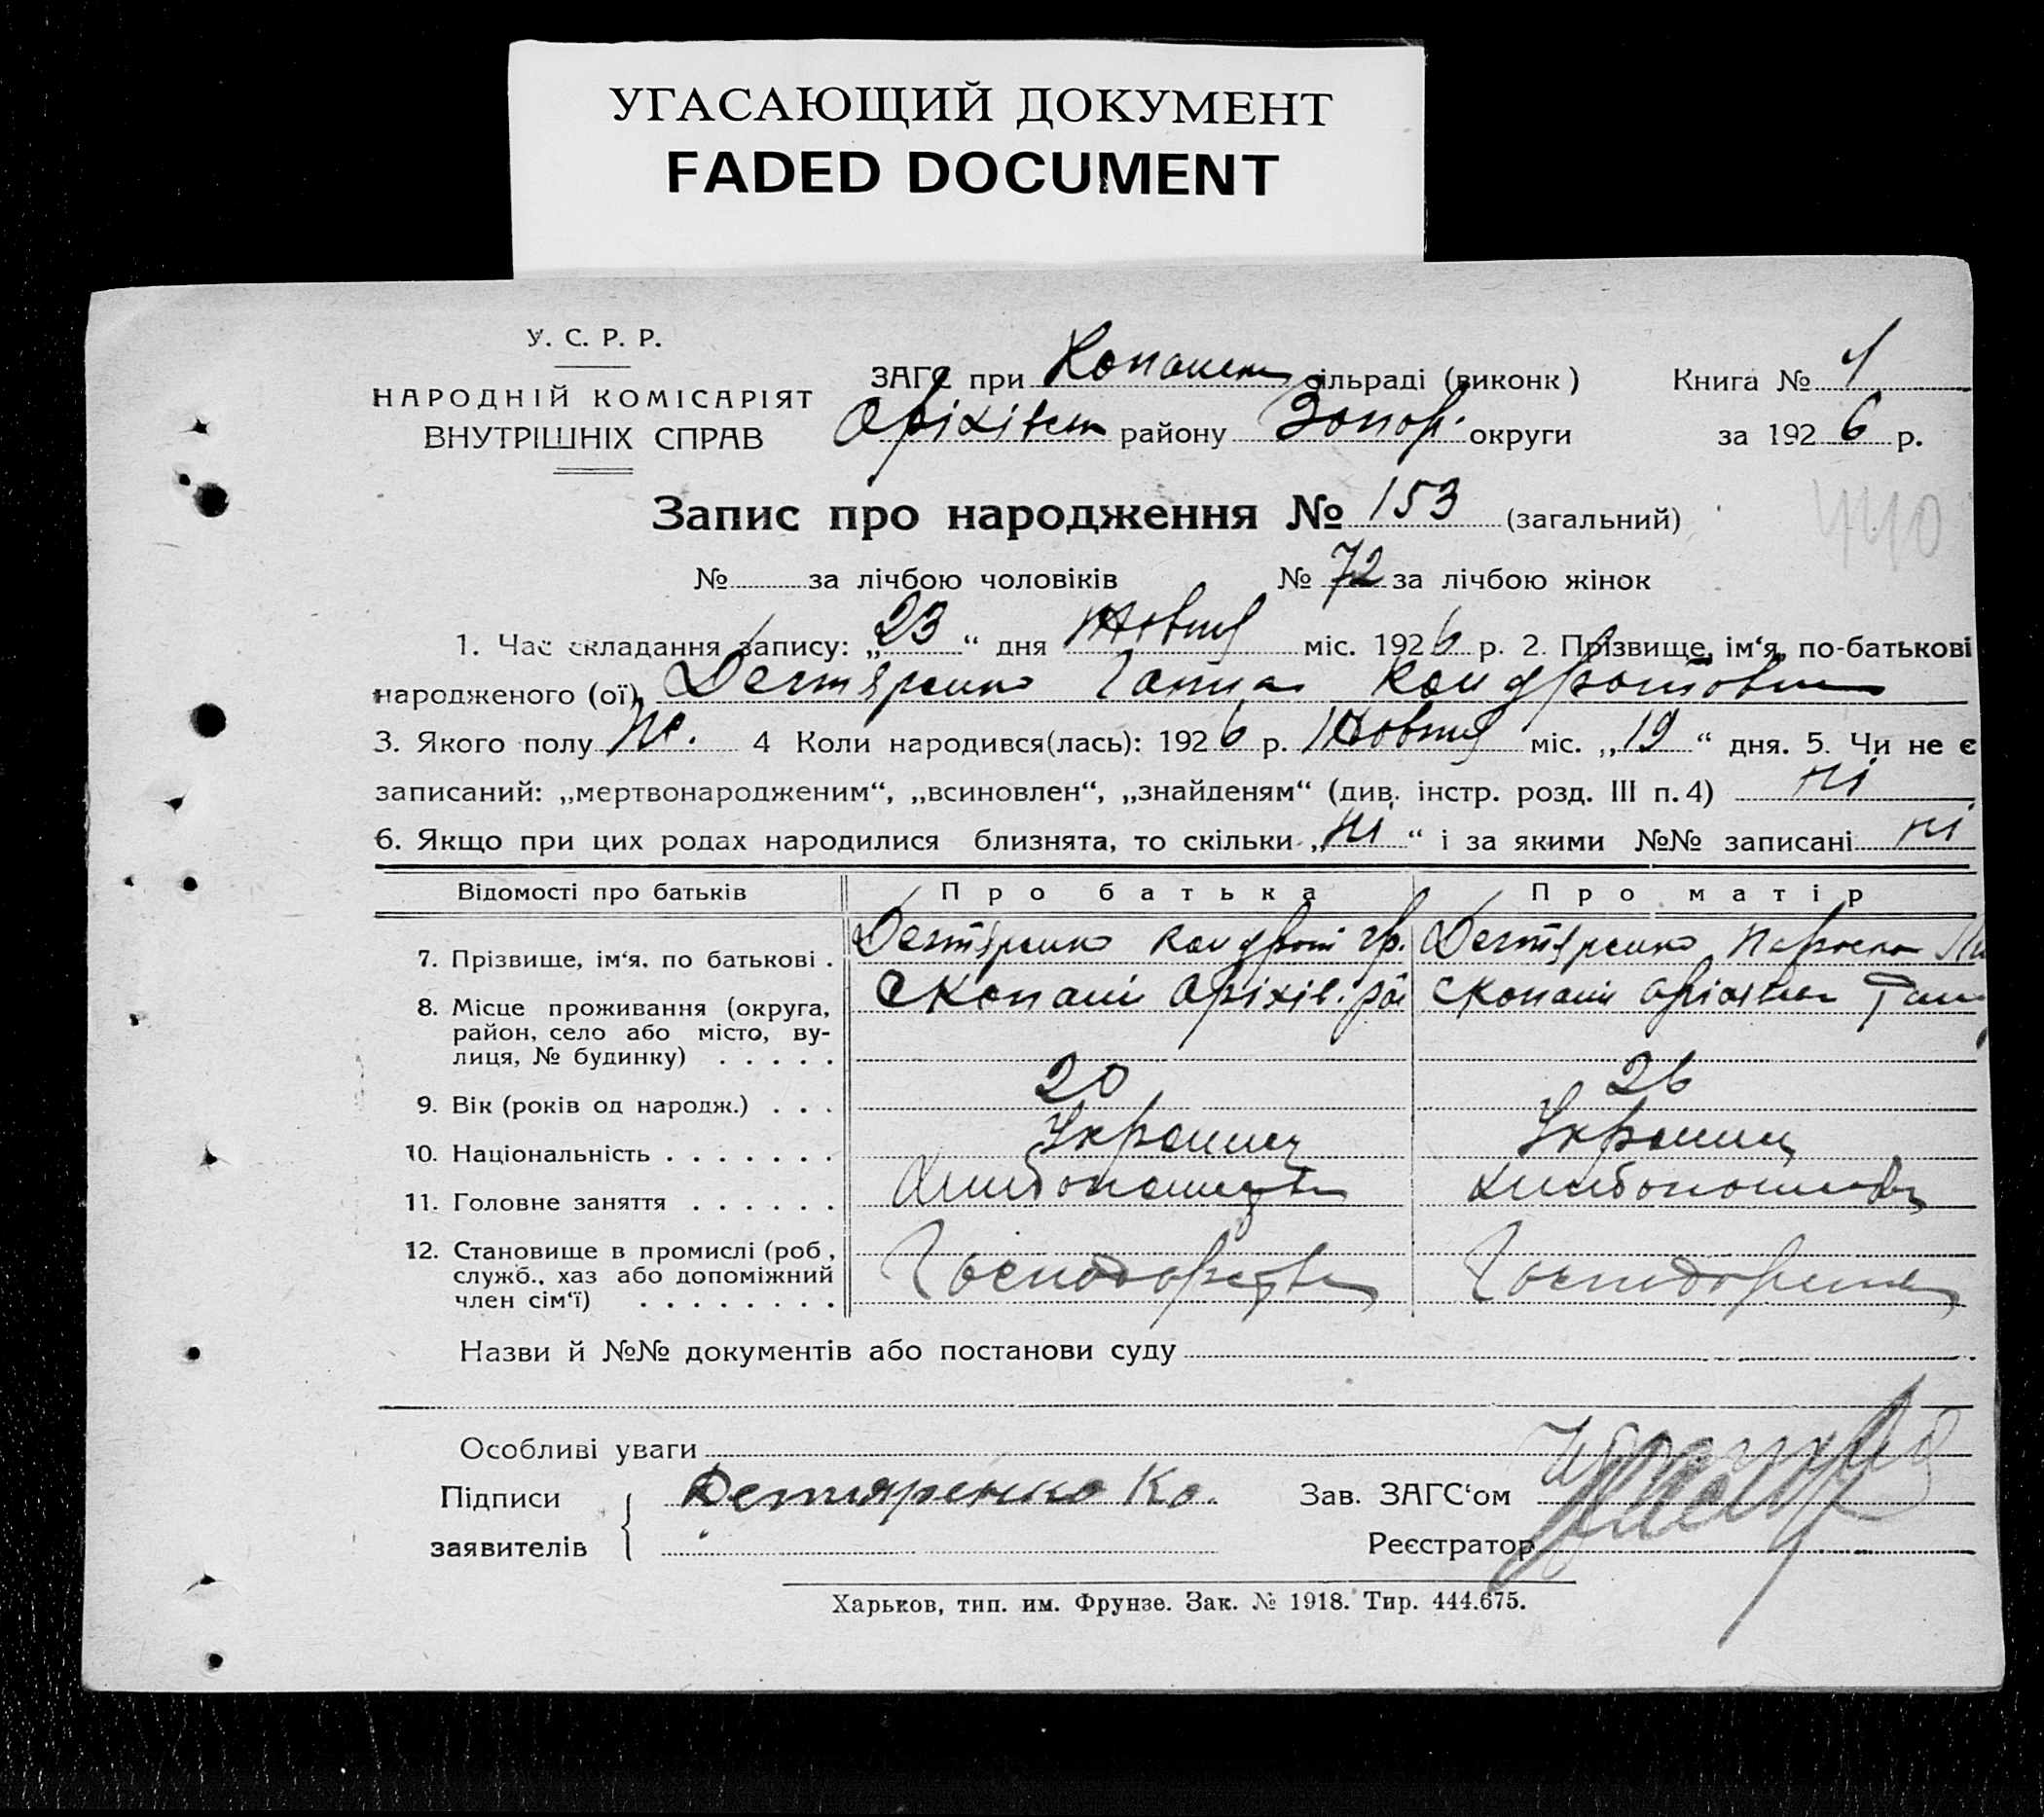 УГАСАЮЩИЙ ДОКУМЕНТ
FADED DOCUMENT
У. С. Р. Р.
НАРОДНІЙ КОМІСАРІЯТ
ВНУТРІШНІХ СПРАВ
ЗАГС при сільраді (виконк) Книга №
Оріхівськ району Запор. округи за 1926 р.
Запис про народження № 153 (загальний)
440
№ за лічбою чоловіків № 72 за лічбою жінок
1. Час складання запису: „23“ дня Жовтня міс. 1926 р. 2. Прізвище, ім‘я, по-батькові
народженого (ої) Дегтяренко Ганна Кондратовна
3. Якого полу Ж. 4 Коли народився(лась): 1926 р. Жовтня міс. „19“ дня. 5. Чи не є
записаний: „мертвонародженим“, „всиновлен“, „знайденям“ (див. інстр. розд. III п. 4) ні
6. Якщо при цих родах народилися близнята, то скільки „ні“ і за якими №№ записані ні
Відомості про батьків Про батька Про матір
7. Прізвище, ім‘я, по батькові . Дегтяренко Кондрат Гр. Дегтяренко Параска
8. Місце проживання (округа, С Копані Оріхів. рай С Копані
район, село або місто, ву-
лиця, № будинку) . . . . .
9. Вік (років од народж.) . . . 20 26
10. Національність . . . . . . . Украинец Украинц
11. Головне заняття . . . . . .
12. Становище в промислі (роб., Господарств
служб., хаз або допоміжний
член сім‘ї) . . . . . . . .
Назви й №№ документів або постанови суду
Особливі уваги
Підписи Детяренко Ко. Зав. ЗАГС‘ом
заявителів Реєстратор
Харьков, тип. им. Фрунзе. Зак. № 1918. Тир. 444.675.